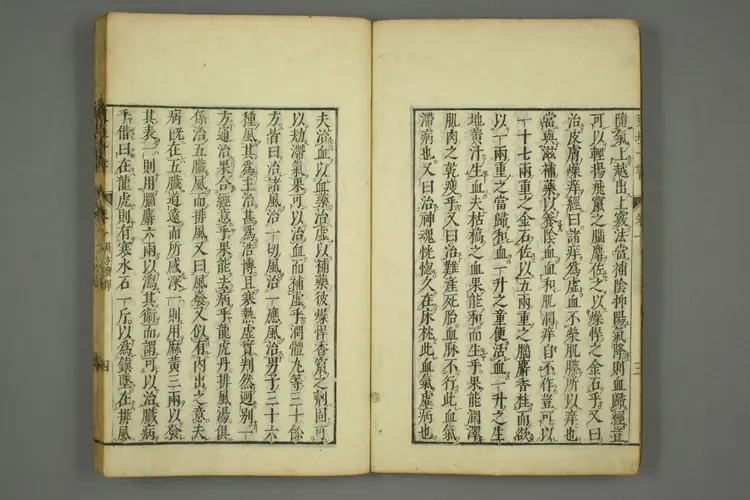 隨氣上越出上竅法當補陰抑陽氣降則血歸經豈
可以輕揚飛竄之腦麝佐之以燥悍之金石乎又曰
治皮膚燥痒經曰諸痒爲虛血不榮肌腠所以痒也
當與滋補藥以養陰血血和肌潤痒自不作豈可以
一十七兩重之金石佐以五兩重之腦麝香桂而欲
以一兩重之當歸和血一升之童便活血一升之生
地黃汁生血夫枯槁之血果能和而生乎果能潤澤
肌肉之乾瘦乎又曰治難產死胎血脉不行此血氣
滯病也又曰治神魂恍惚久在床枕此血氣虛病也
夫治血以血藥治虛以補藥彼燥悍香竄之劑固可
以劫滯氣果可以治血而補虛乎潤體丸等三十餘
方皆曰治諸風治一切風治一應風治男子三十六
種風其爲主治甚爲浩博且寒熱虛實判然迥別一
方通治果合經意乎果能去病乎龍虎丹排風湯俱
係治五臟風而排風又曰風發又似有內出之意夫
病既在五臟道遠而所感深一則用麻黃三兩以發
其表一則用腦麝六兩以瀉其衛而謂可以治臟病
乎借曰在龍虎則有寒水石一斤以為鎮墜在排風
四